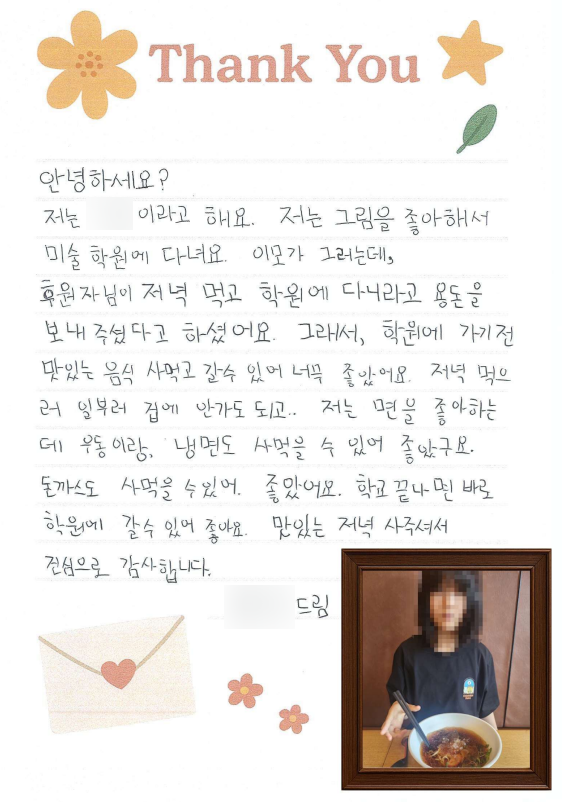 Thank You
안녕하세요?
저는 이라고 해요. 저는 그림을 좋아해서
미술 학원에 다녀요. 이모가 그러는데,
후원자님이 저녁 먹고 학원에 다니라고 용돈을
보내 주셨다고 하셨어요. 그래서, 학원에 가기전
맛있는 음식 사먹고 갈수 있어 너무 좋았어요. 저녁 먹으
러 일부러 집에 안가도 되고.. 저는 면을 좋아하는
데 우동이랑, 냉면도 사먹을 수 있어 좋았구요.
돈까스도 사먹을 수있어. 좋았어요. 학교 끝나면 바로
학원에 갈수 있어 좋아요. 맛있는 저녁 사주셔서
진심으로 감사합니다.
드림